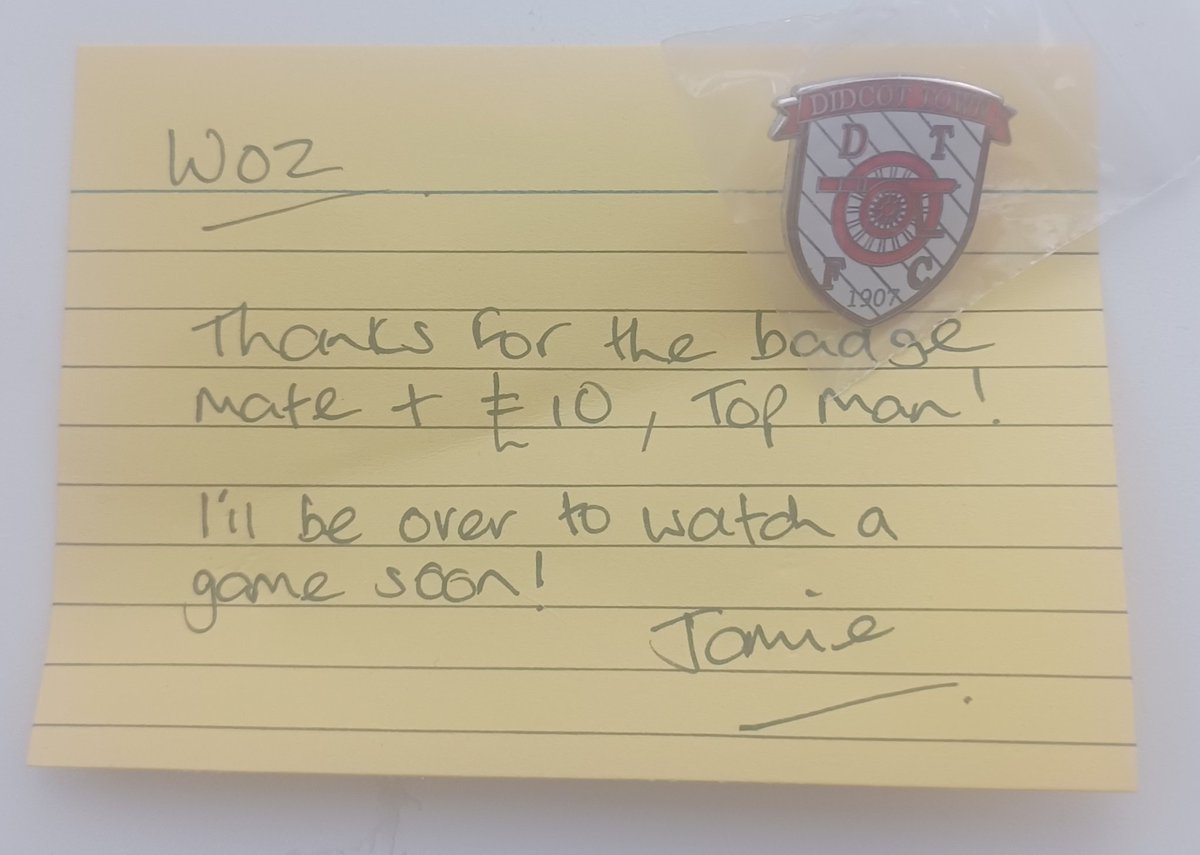 DIDCOT TOWN
D T
F C
1907
Woz
Thanks for the badge
mate + £10, Top man!
I'll be over to watch a
game soon!
Jamie